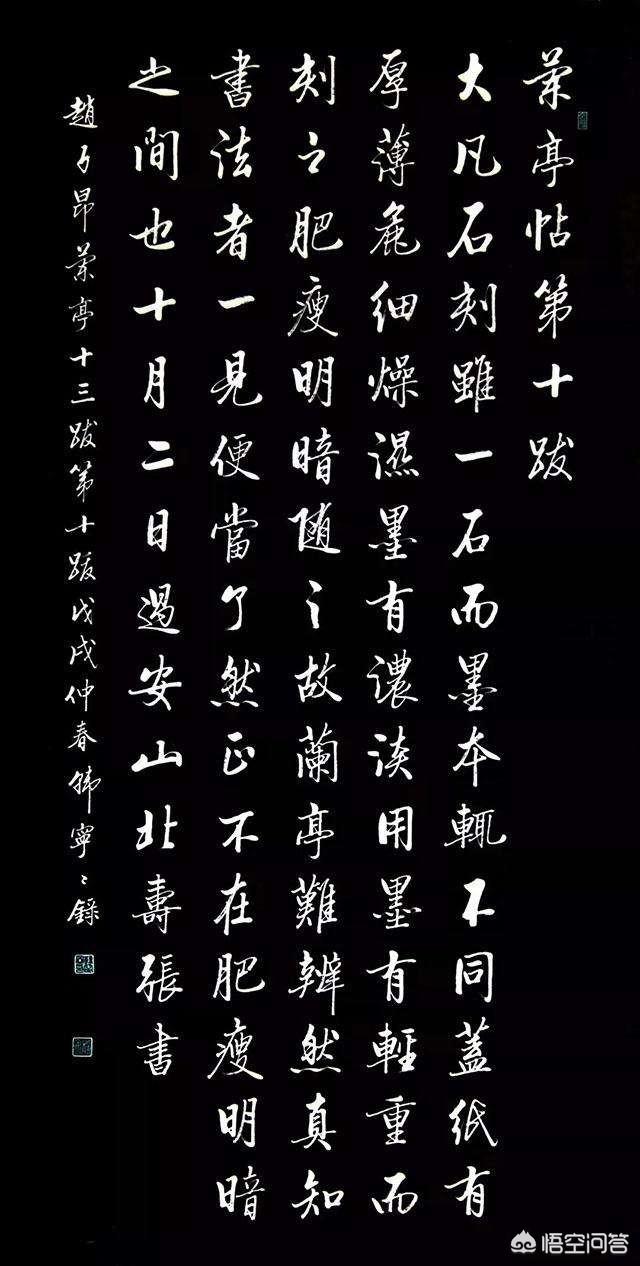 蘭亭帖第十跋
大凡石刻雖一石而墨本輒不同蓋紙有
厚薄麁細燥濕墨有濃淡用墨有輕重而
刻之肥瘦明暗随之故蘭亭難辨然真知
書法者一見便當了然正不在肥瘦明暗
之間也十月二日過安山北壽張書
趙子昂蘭亭十三跋第十跋戊戌仲春韩寧〻錄
悟空问答